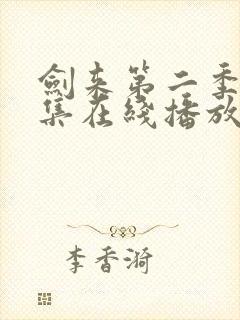 劍来第二季
集在綫播放
李香漪